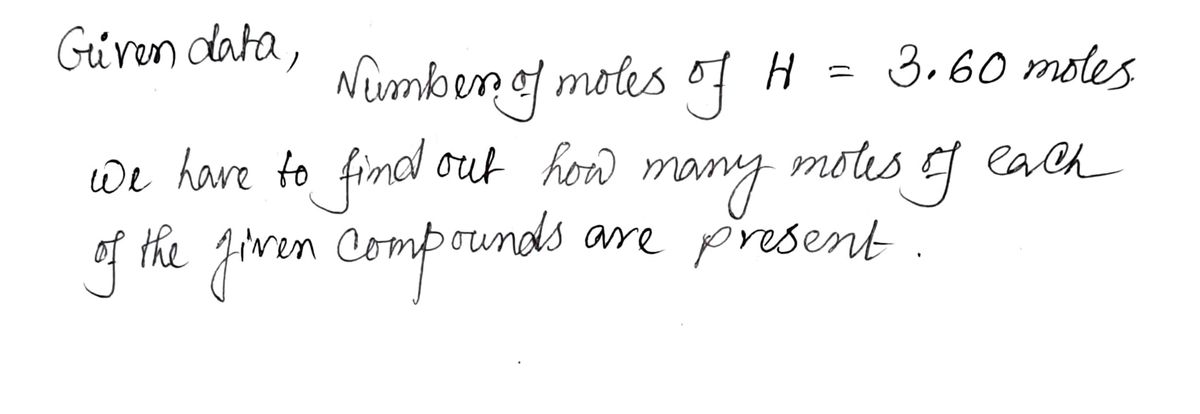 Given data,
Number of moles of H = 3.60 moles.
we have to find out how many moles of each
of the given compounds are present.